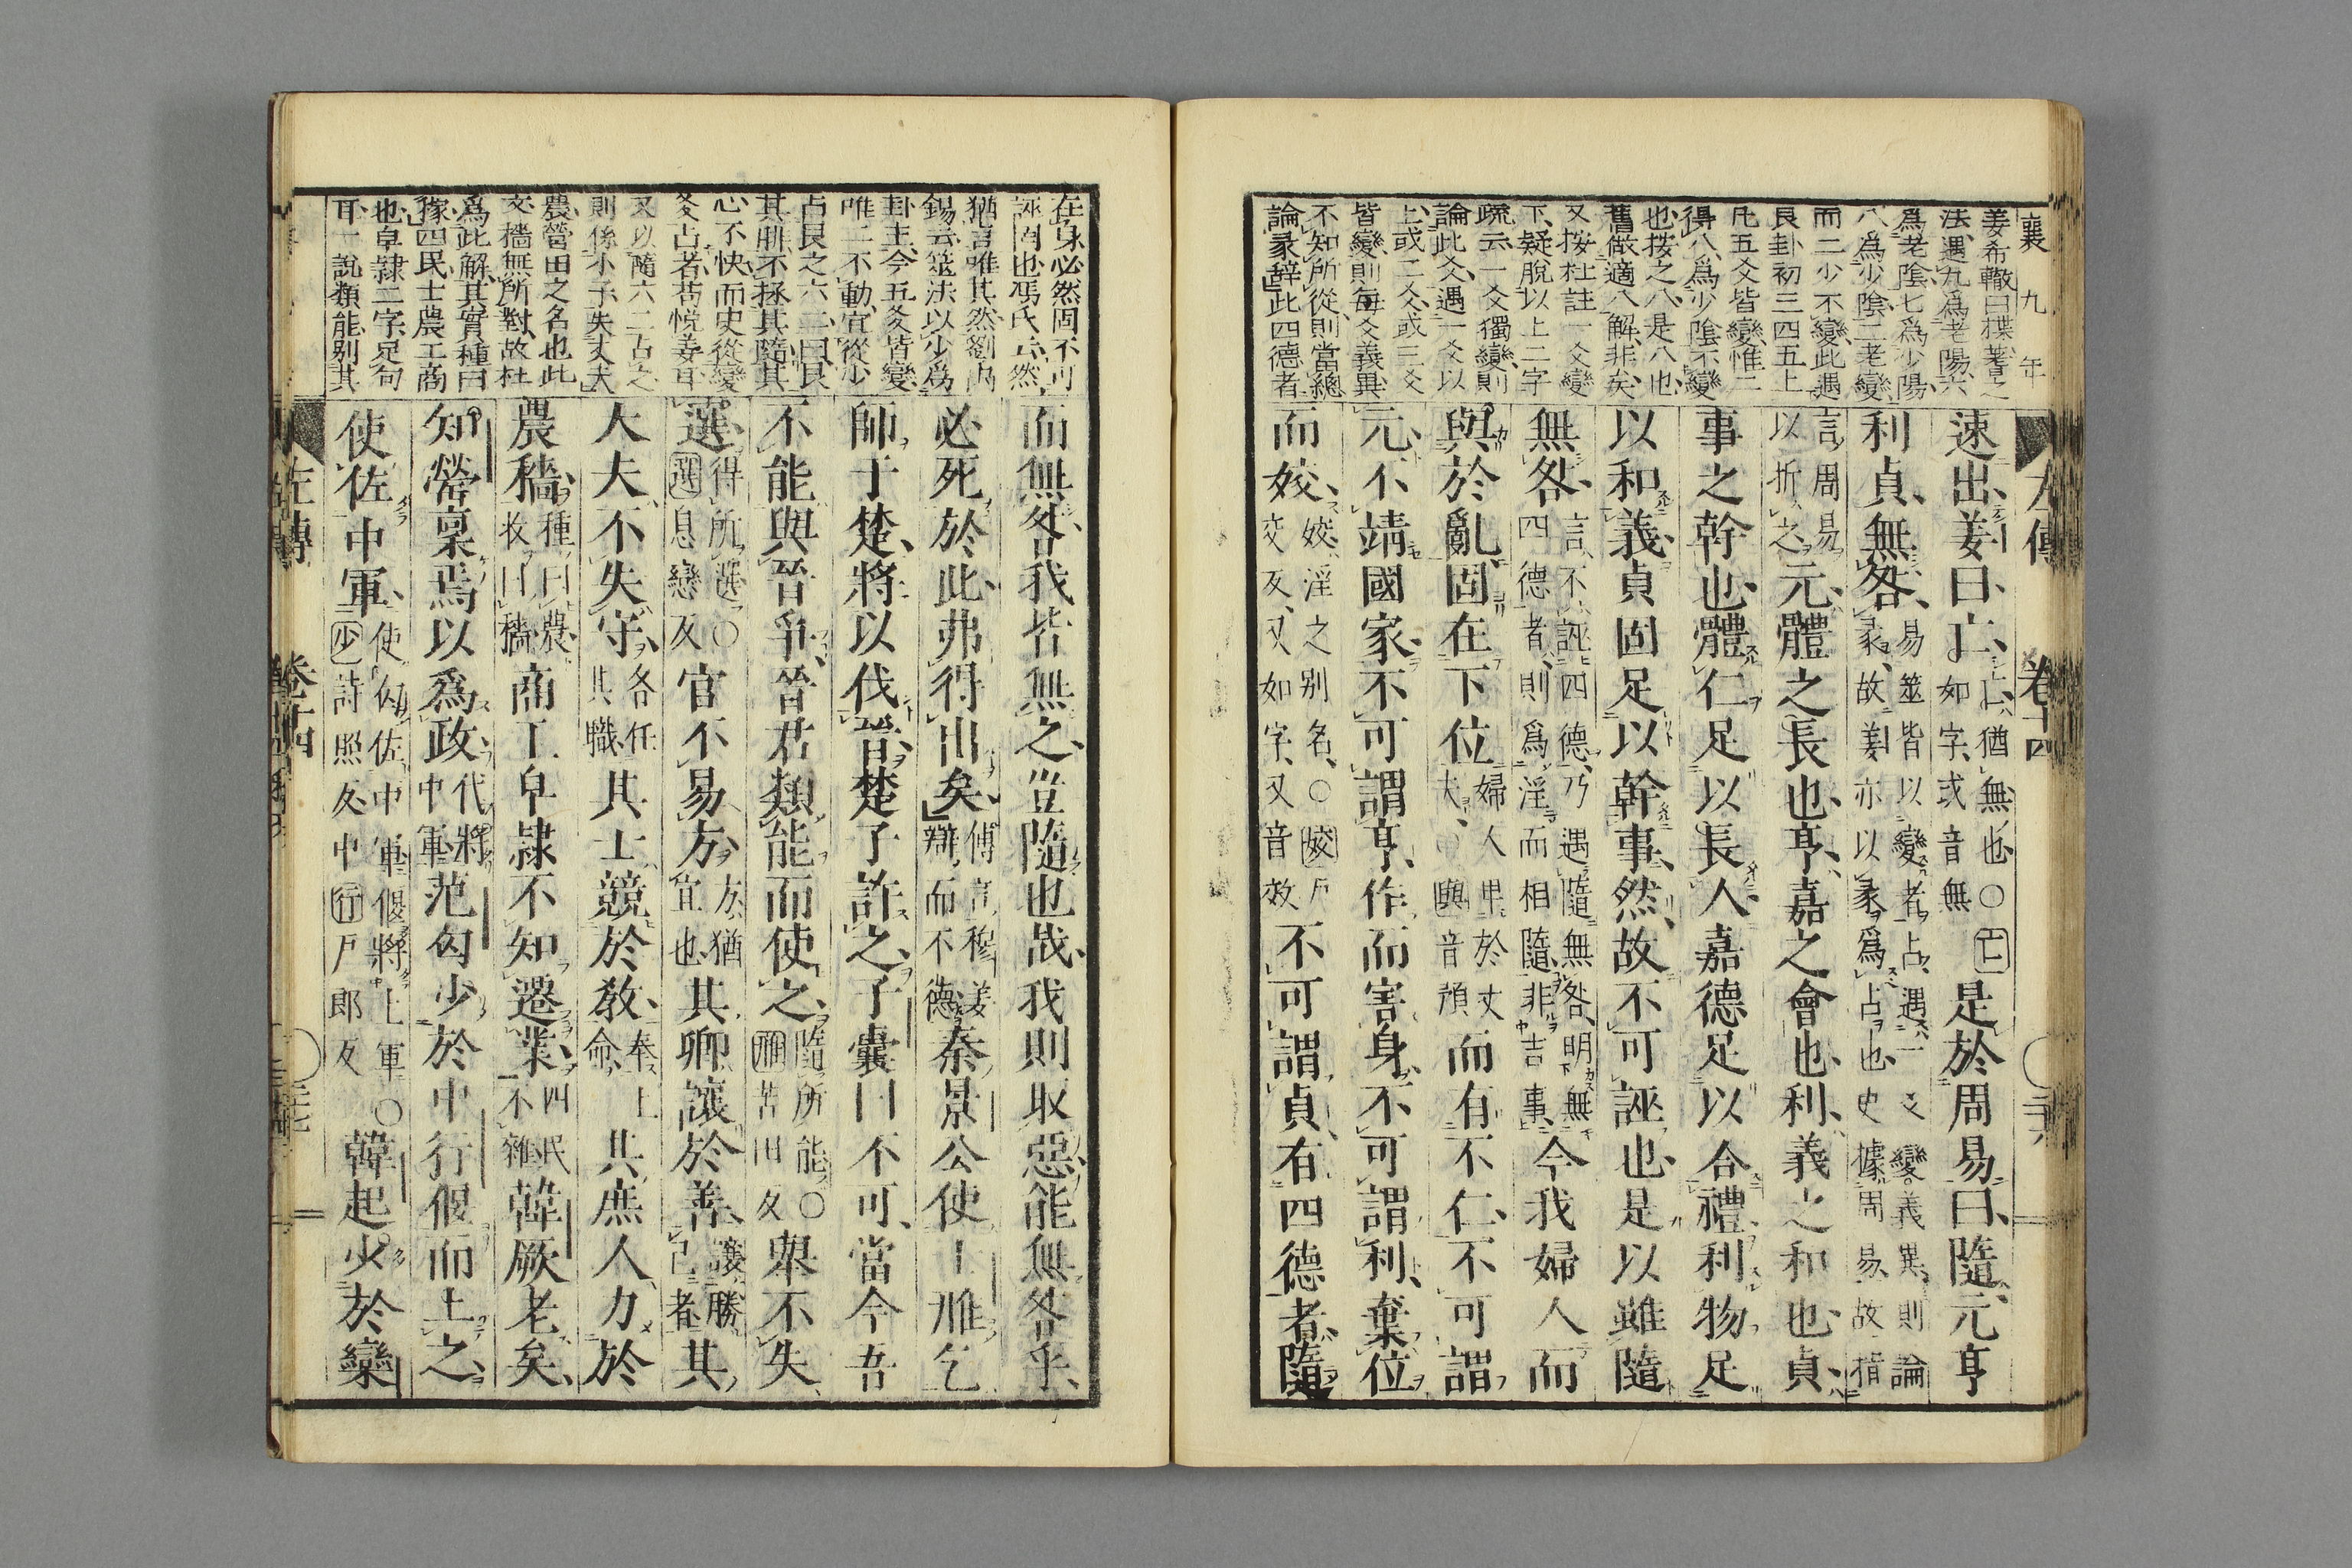 襄九年
姜希轍曰揲蓍之
法遇九爲老陽六
爲老陰七爲少陽
八爲少陰二老變
而二少不變此遇
艮卦初三四五上
凡五爻皆變惟二
得八爲少陰不變
也按之八是八也
舊做適八解非矣
又按杜註一爻變
下疑脫以上二字
疏云一爻獨變則
論此爻遇一爻以
上或二爻或三爻
皆變則每爻義異
不知所從則當總
論彖辭此四德者
左傳 卷十四
速出姜曰亡亡猶無也○亡如字或音無是於周易曰隨元亨
利貞無咎易筮皆以變者占遇一爻變義異則論彖故姜亦以彖爲占也史據周易故指
言周易以折之元體之長也亨嘉之會也利義之和也貞
事之幹也體仁足以長人嘉德足以合禮利物足
以和義貞固足以幹事然故不可誣也是以雖隨
無咎言不誣四德乃遇隨無咎明無四德者則爲淫而相隨非吉事今我婦人而
與於亂固在下位婦人卑於丈夫○與音預而有不仁不可謂
元不靖國家不可謂亨作而害身不可謂利棄位
而姣姣淫之别名○姣戶交反又如字又音效不可謂貞有四德者隨
在身必然固不可
誣罔也馮氏云然
猶言唯其然劉禹
錫云筮法以少爲
卦主今五爻皆變
唯二不動宜從少
占艮之六二曰艮
其腓不拯其隨其
心不快而史從變
爻占者苟悅姜耳
又以隨六二占之
則係小子失丈夫
農營田之名也此
文穡無所對故杜
爲此解其實種曰
稼四民士農工商
也皁隷二字足句
耳一說類能别其
而無咎我皆無之豈隨也哉我則取惡能無咎乎
必死於此弗得出矣傳言穆姜辯而不德秦景公使士雃乞
師于楚將以伐晉楚子許之子囊曰不可當今吾
不能與晉爭晉君類能而使之隨所能○雃苦田反舉不失
選得所選○選息戀反官不易方方猶宜也其卿讓於善讓勝己者其
大夫不失守各任其職其士競於教奉上命其庶人力於
農穡種曰農收曰穡商工皁隷不知遷業四民不雜韓厥老矣
知罃稟焉以爲政代將中軍范匄少於中行偃而上之
使佐中軍使匄佐中軍偃將上軍○少詩照反中行戶郎反韓起少於欒
左傳 卷十四